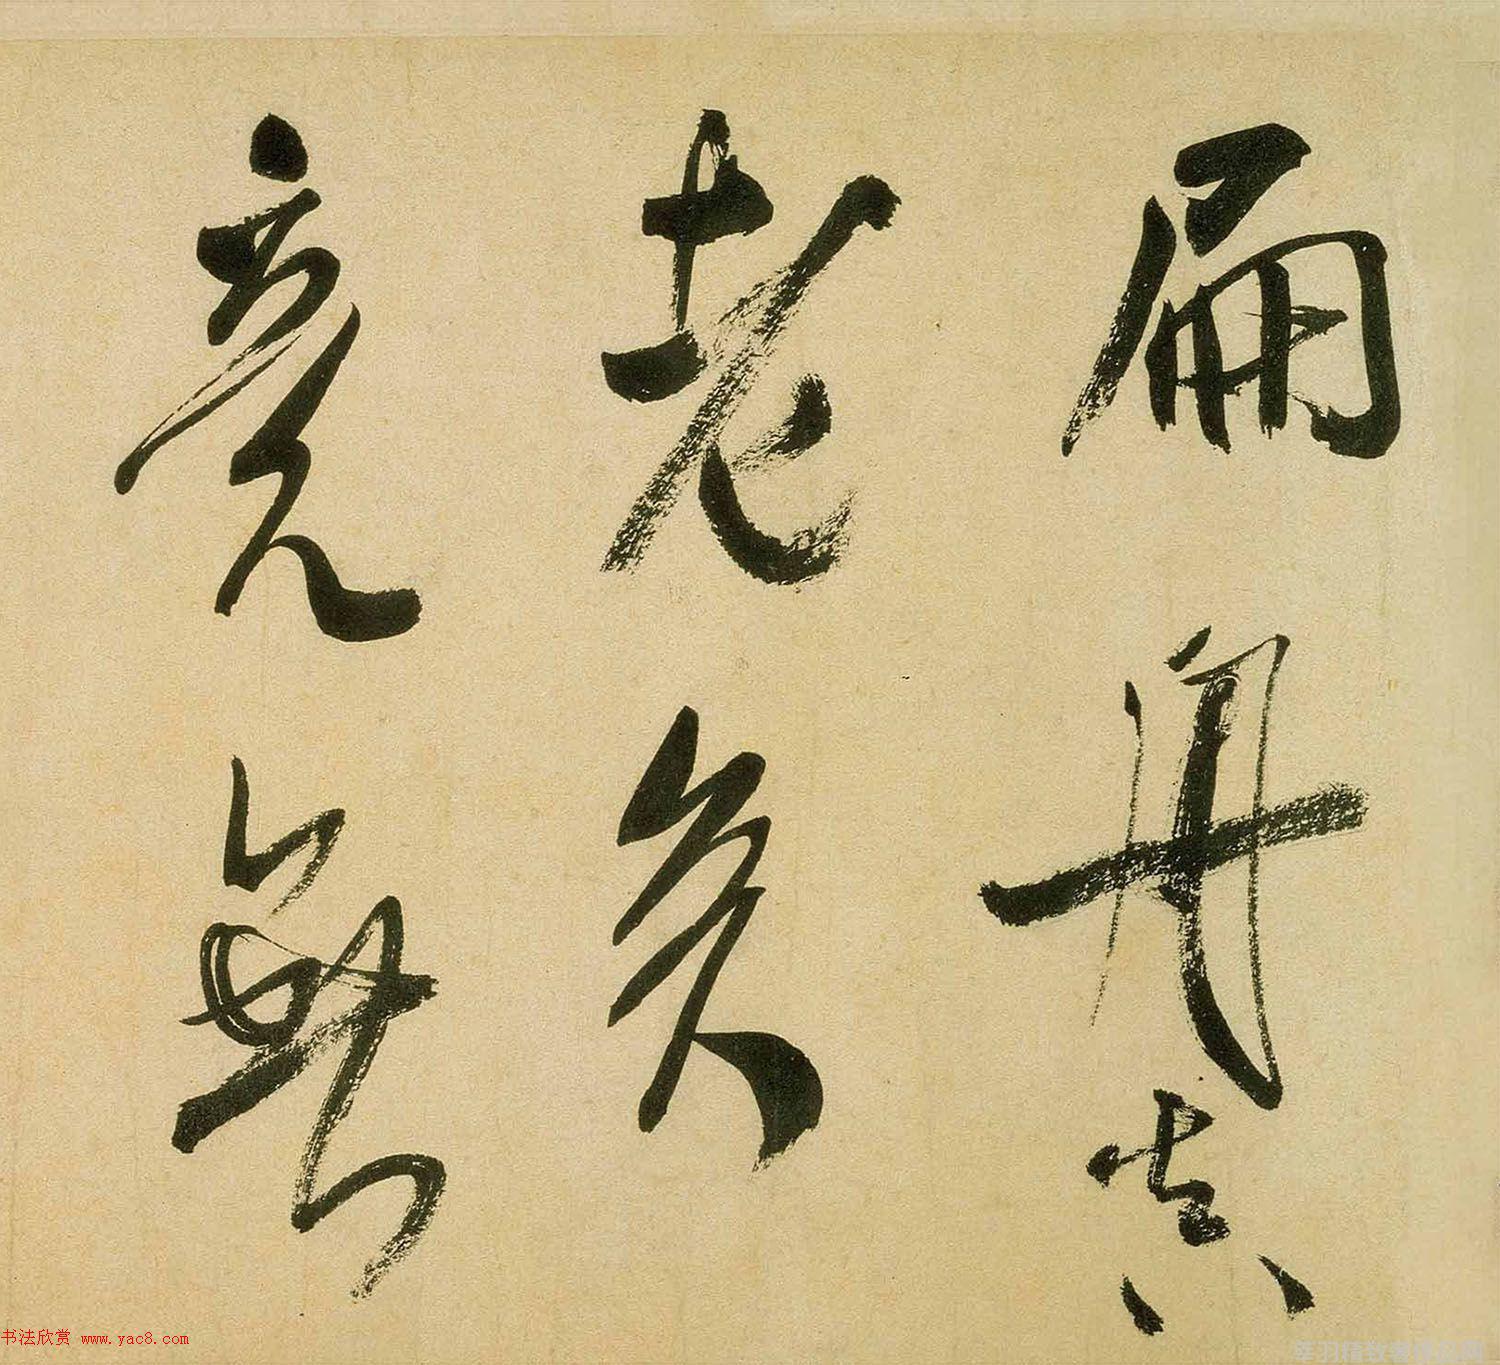 扁舟真
老矣
竟無
书法欣赏 www.yac8.com